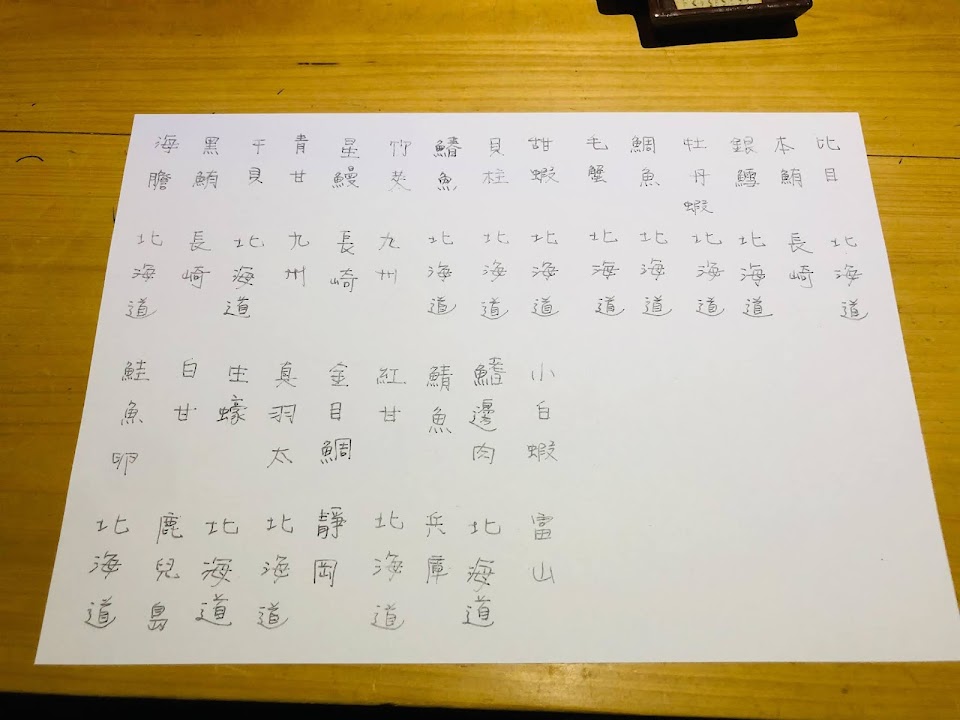 海膽
黑鮪
干貝
青甘
星鰻
竹莢
鰆魚
貝柱
甜蝦
毛蟹
鯛魚
牡丹蝦
銀鱈
本鮪
比目
北海道
長崎
北海道
九州
長崎
九州
北海道
北海道
北海道
北海道
北海道
北海道
北海道
長崎
北海道
鮭魚卵
白甘
生蠔
真羽太
金目鯛
紅甘
鯖魚
鰭邊肉
小白蝦
北海道
鹿兒島
北海道
北海道
靜岡
北海道
兵庫
北海道
富山